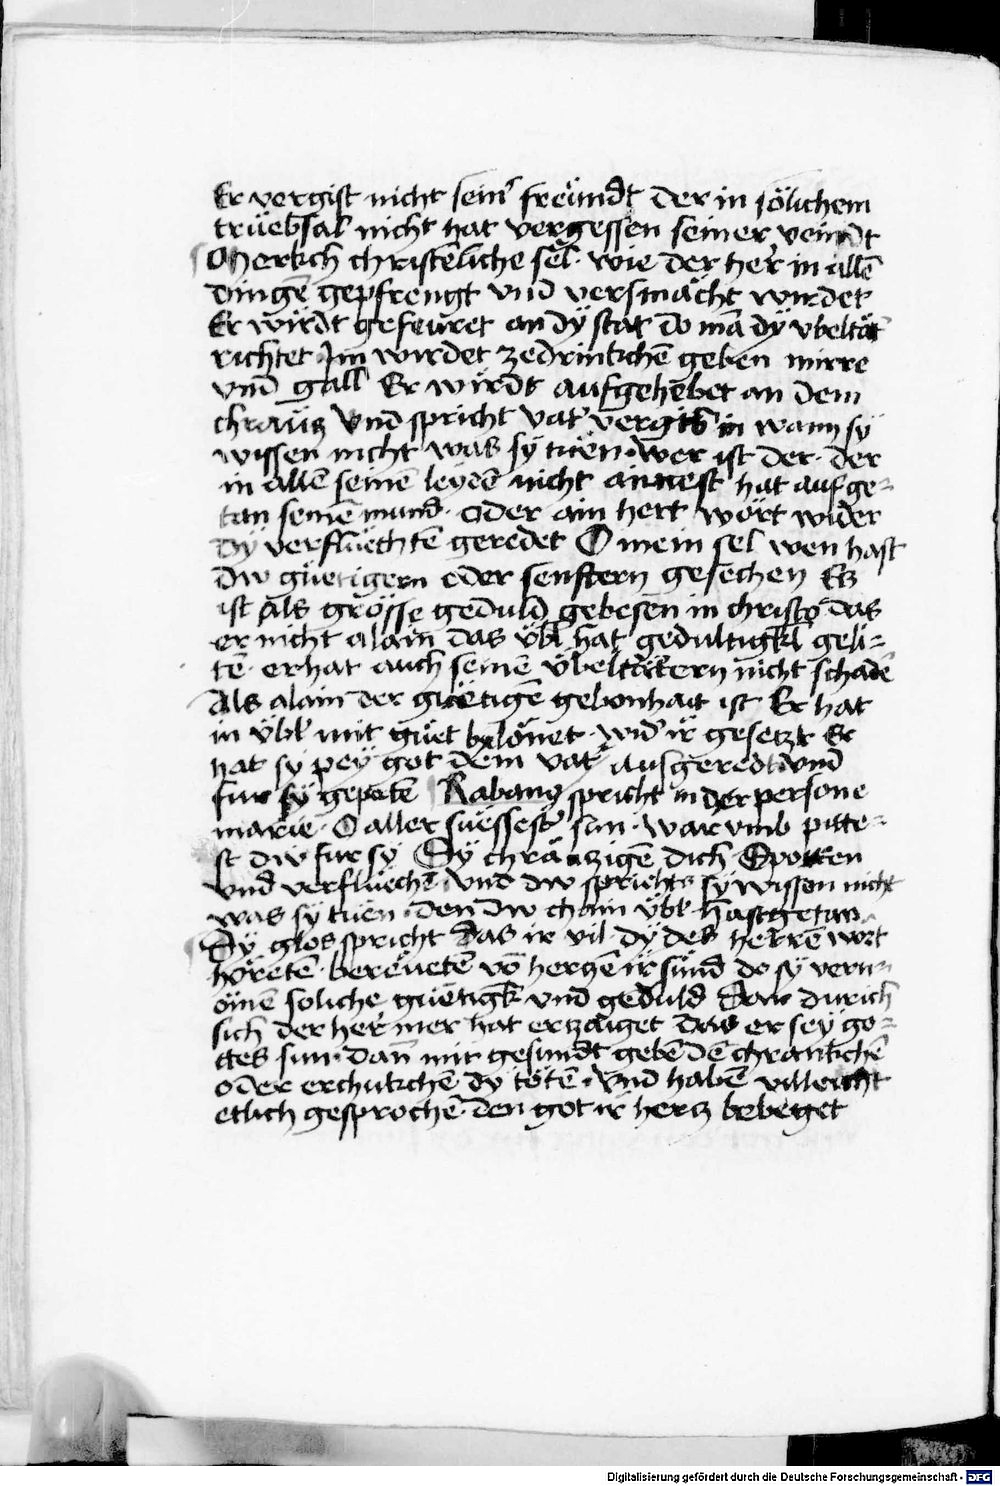 Er vergist nicht seinˀ freündt der in sölichem
trüebsal nicht hat vergessen seiner veindt
Merkch christenliche sel · wie der her in allē
dingē gepfrengt vnd versmächt wirdet
Er wirdt gefeüret an dÿ stat do mā dÿ vbeltät
richtet Im wirdet ze drinkchē geben mirre
vnd gall Er wirdt aufgehebet an dem
chräutz Vnd spricht vatˀ vergib in wann sÿ
wissen nicht was sÿ tüen · wer ist der · der
in allē seinē leydē nicht ainnest hat aufge=
tan seinē mund · oder ain hert wört wider
dÿ verflüechtē geredet O mein sel wen hast
dw güetigern oder senftern gesechen Es
ist als grösse geduld gebesen in christo das
er nicht alain das übl hat gedultigkl geli=
tē · er hat auch seinē übeltätern nicht schadē
Als alain der güetigē gebonhait ist Er hat
in übl mit güet belönet · widˀ ir gesetzt Er
hat sÿ peÿ got dem vatˀ ausgeredt vnd
fur sÿ gepetē Rabanus spricht in der persone
marie · O aller süessestˀ sun · warumb pitte=
st dw fur sÿ Sÿ chräutzigē dich Spotten
vnd verflüechē · vnd dw sprichts sÿ wissen nicht
was sÿ tüen · den dw chain übl hast getan
Dÿ glos spricht das ir vil · dÿ des herrē wort
höretē · berëuetē vō hertzē ir sünd do sÿ vern=
ömen soliche güetigk vnd geduld Dar durich
sich der her mer hat ertzaiget das er seÿ go=
ttes sun · dan mit gesundt gebē dē chrankchē
oder erchukchē dÿ tötē · vnd habē villeicht
etlich gesprochē · den got ir hertz beberget
Digitalisierung gefördert durch die Deutsche Forschungsgemeinschaft - DFG